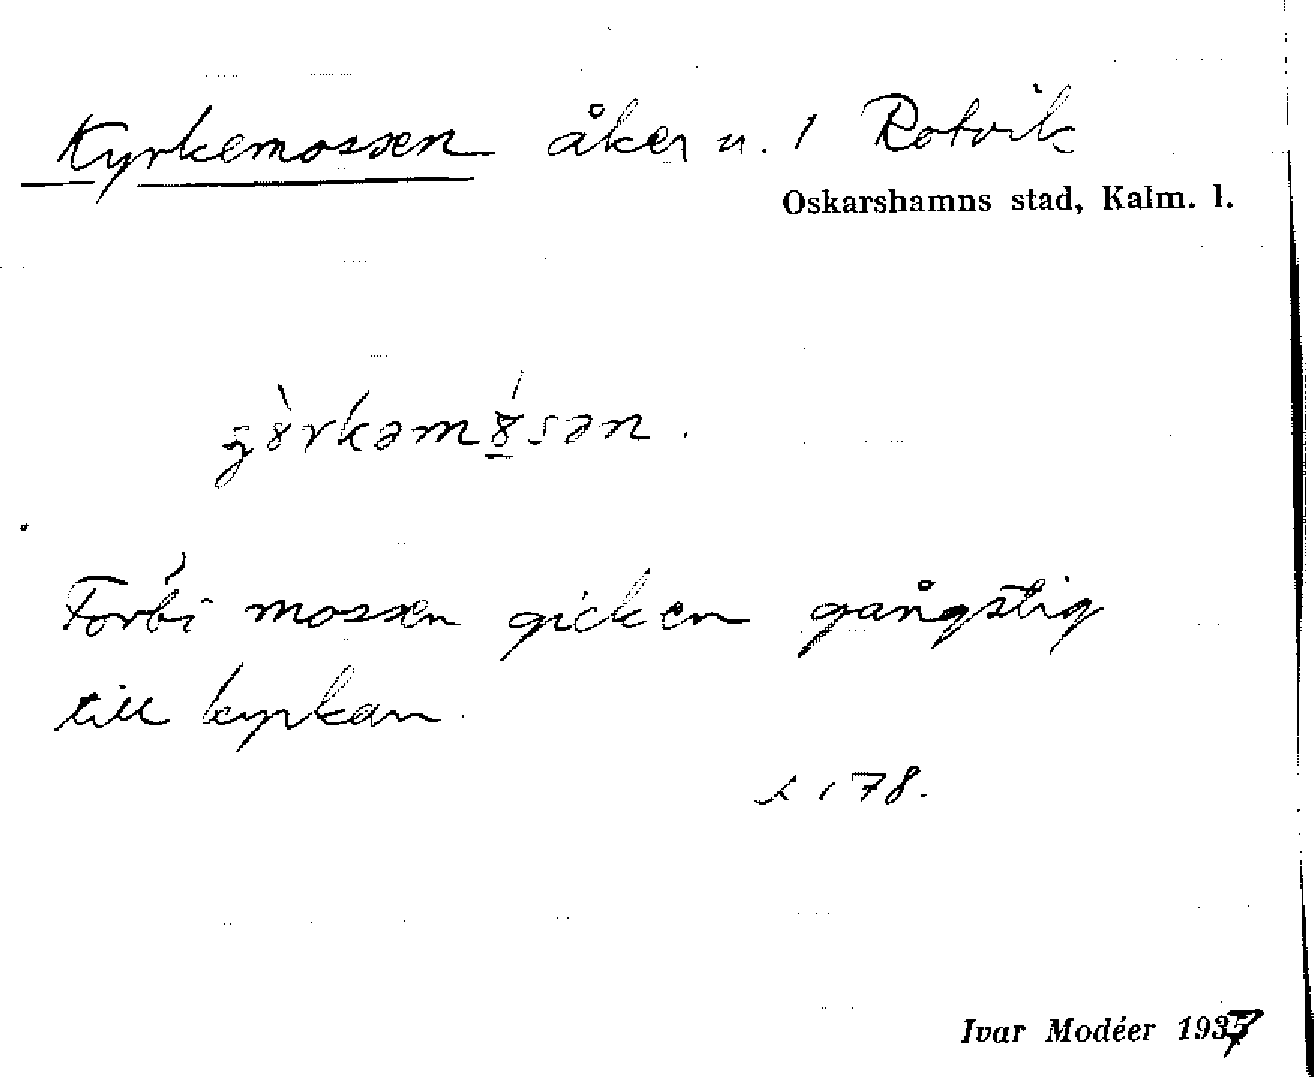 Kyrkemossen åker n. 1 Rotvik
Oskarshamns stad, Kalm. l.
Förbi mossen gick en gångstig
till kyrkan.
s 178.
Ivar Modéer 1937